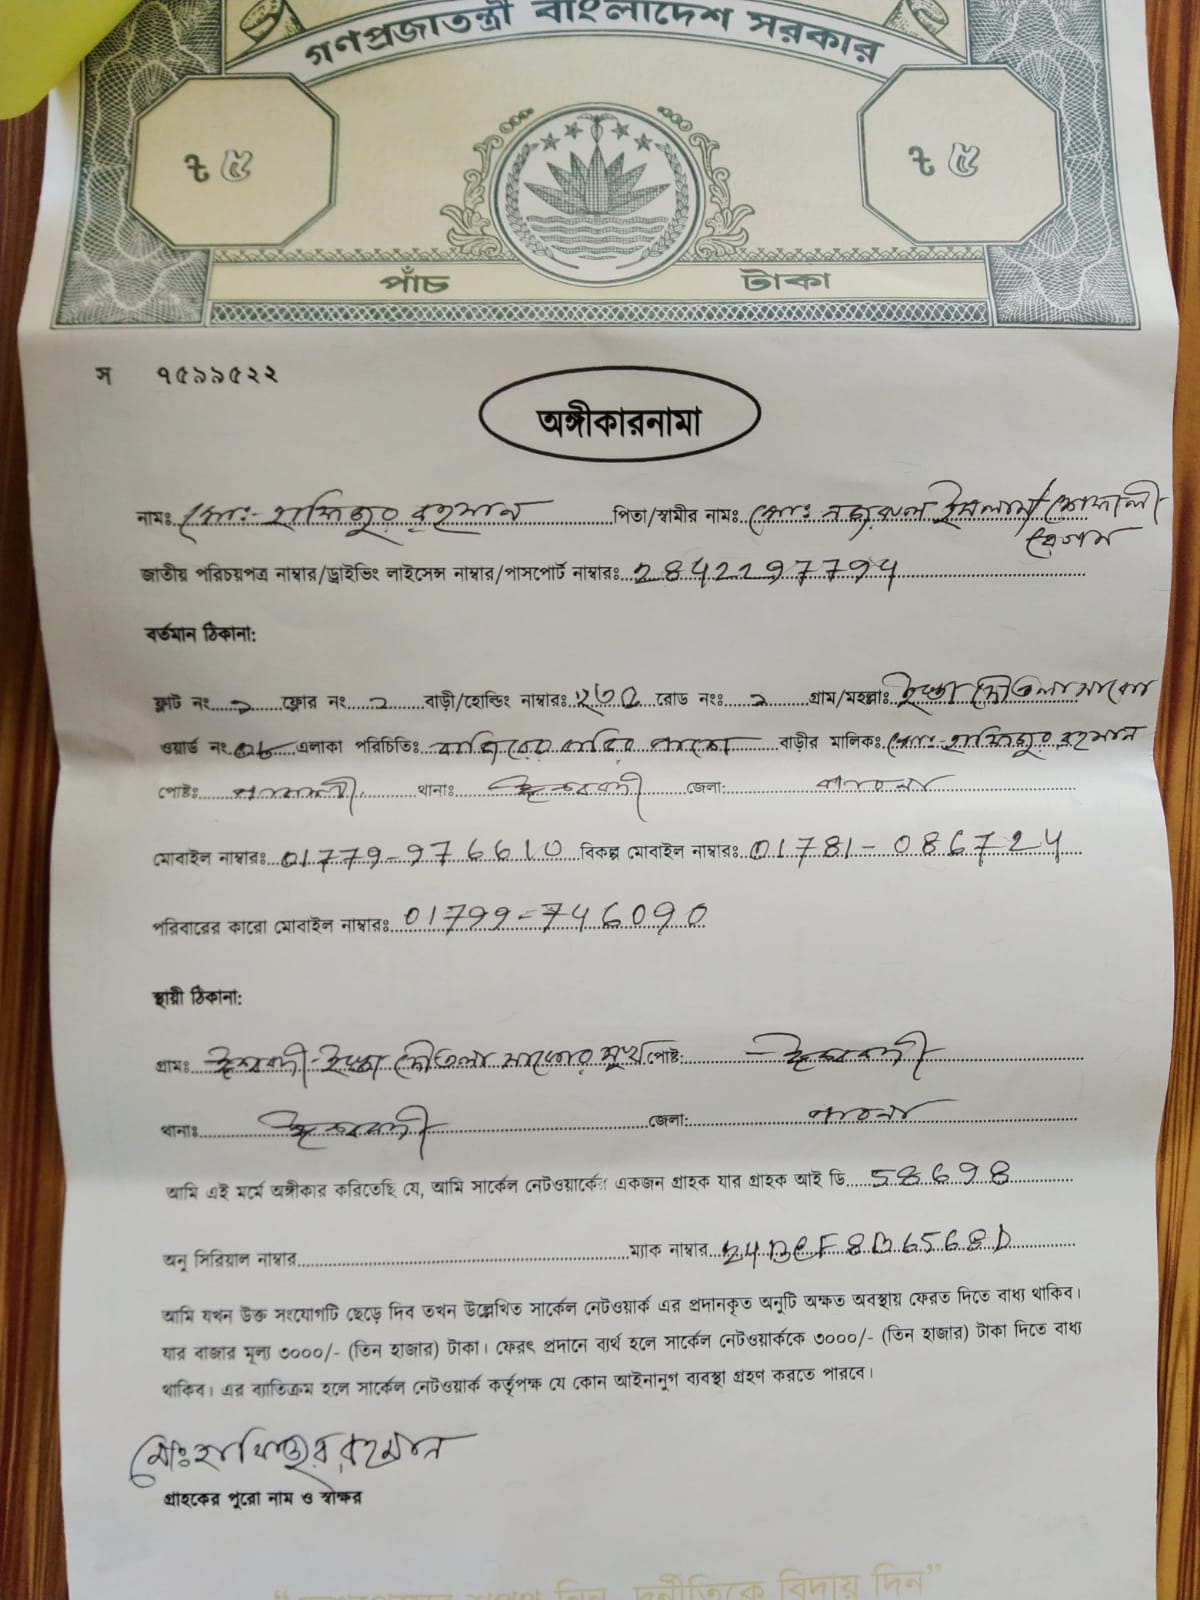 গণপ্রজাতন্ত্রী বাংলাদেশ সরকার
৳ ৫ ৳ ৫
পাঁচ টাকা
স ৭৫৯৯৫২২
অঙ্গীকারনামা
নামঃ মোঃ- হাফিজুর রহমান পিতা/স্বামীর নামঃ মোঃ নজরুল ইসলাম/ শেফালী
বেগম
জাতীয় পরিচয়পত্র নাম্বার/ড্রাইভিং লাইসেন্স নাম্বার/পাসপোর্ট নাম্বারঃ 2842297794
বর্তমান ঠিকানা:
ফ্লাট নং ফ্লোর নং বাড়ী/হোল্ডিং নাম্বারঃ রোড নংঃ গ্রাম/মহল্লাঃ
ওয়ার্ড নং এলাকা পরিচিতিঃ বাড়ীর মালিকঃ মোঃ- হাফিজুর রহমান
পোষ্টঃ থানাঃ ঈশ্বরদী জেলা: পাবনা
মোবাইল নাম্বারঃ 01779-976610 বিকল্প মোবাইল নাম্বারঃ 01781- 086724
পরিবারের কারো মোবাইল নাম্বারঃ 01799-746090
স্থায়ী ঠিকানা:
গ্রামঃ ঈশ্বরদী- পোষ্ট: ঈশ্বরদী
থানাঃ ঈশ্বরদী জেলা: পাবনা
আমি এই মর্মে অঙ্গীকার করিতেছি যে, আমি সার্কেল নেটওয়ার্কের একজন গ্রাহক যার গ্রাহক আই ডি 58698
অনু সিরিয়াল নাম্বার ম্যাক নাম্বার 24BCF8B6568D
আমি যখন উক্ত সংযোগটি ছেড়ে দিব তখন উল্লেখিত সার্কেল নেটওয়ার্ক এর প্রদানকৃত অনুটি অক্ষত অবস্থায় ফেরত দিতে বাধ্য থাকিব।
যার বাজার মূল্য ৩০০০/- (তিন হাজার) টাকা। ফেরৎ প্রদানে ব্যর্থ হলে সার্কেল নেটওয়ার্ককে ৩০০০/- (তিন হাজার) টাকা দিতে বাধ্য
থাকিব। এর ব্যতিক্রম হলে সার্কেল নেটওয়ার্ক কর্তৃপক্ষ যে কোন আইনানুগ ব্যবস্থা গ্রহণ করতে পারবে।
মোঃ হাফিজুর রহমান
গ্রাহকের পুরো নাম ও স্বাক্ষর
দুর্নীতিকে বিদায় দিন”